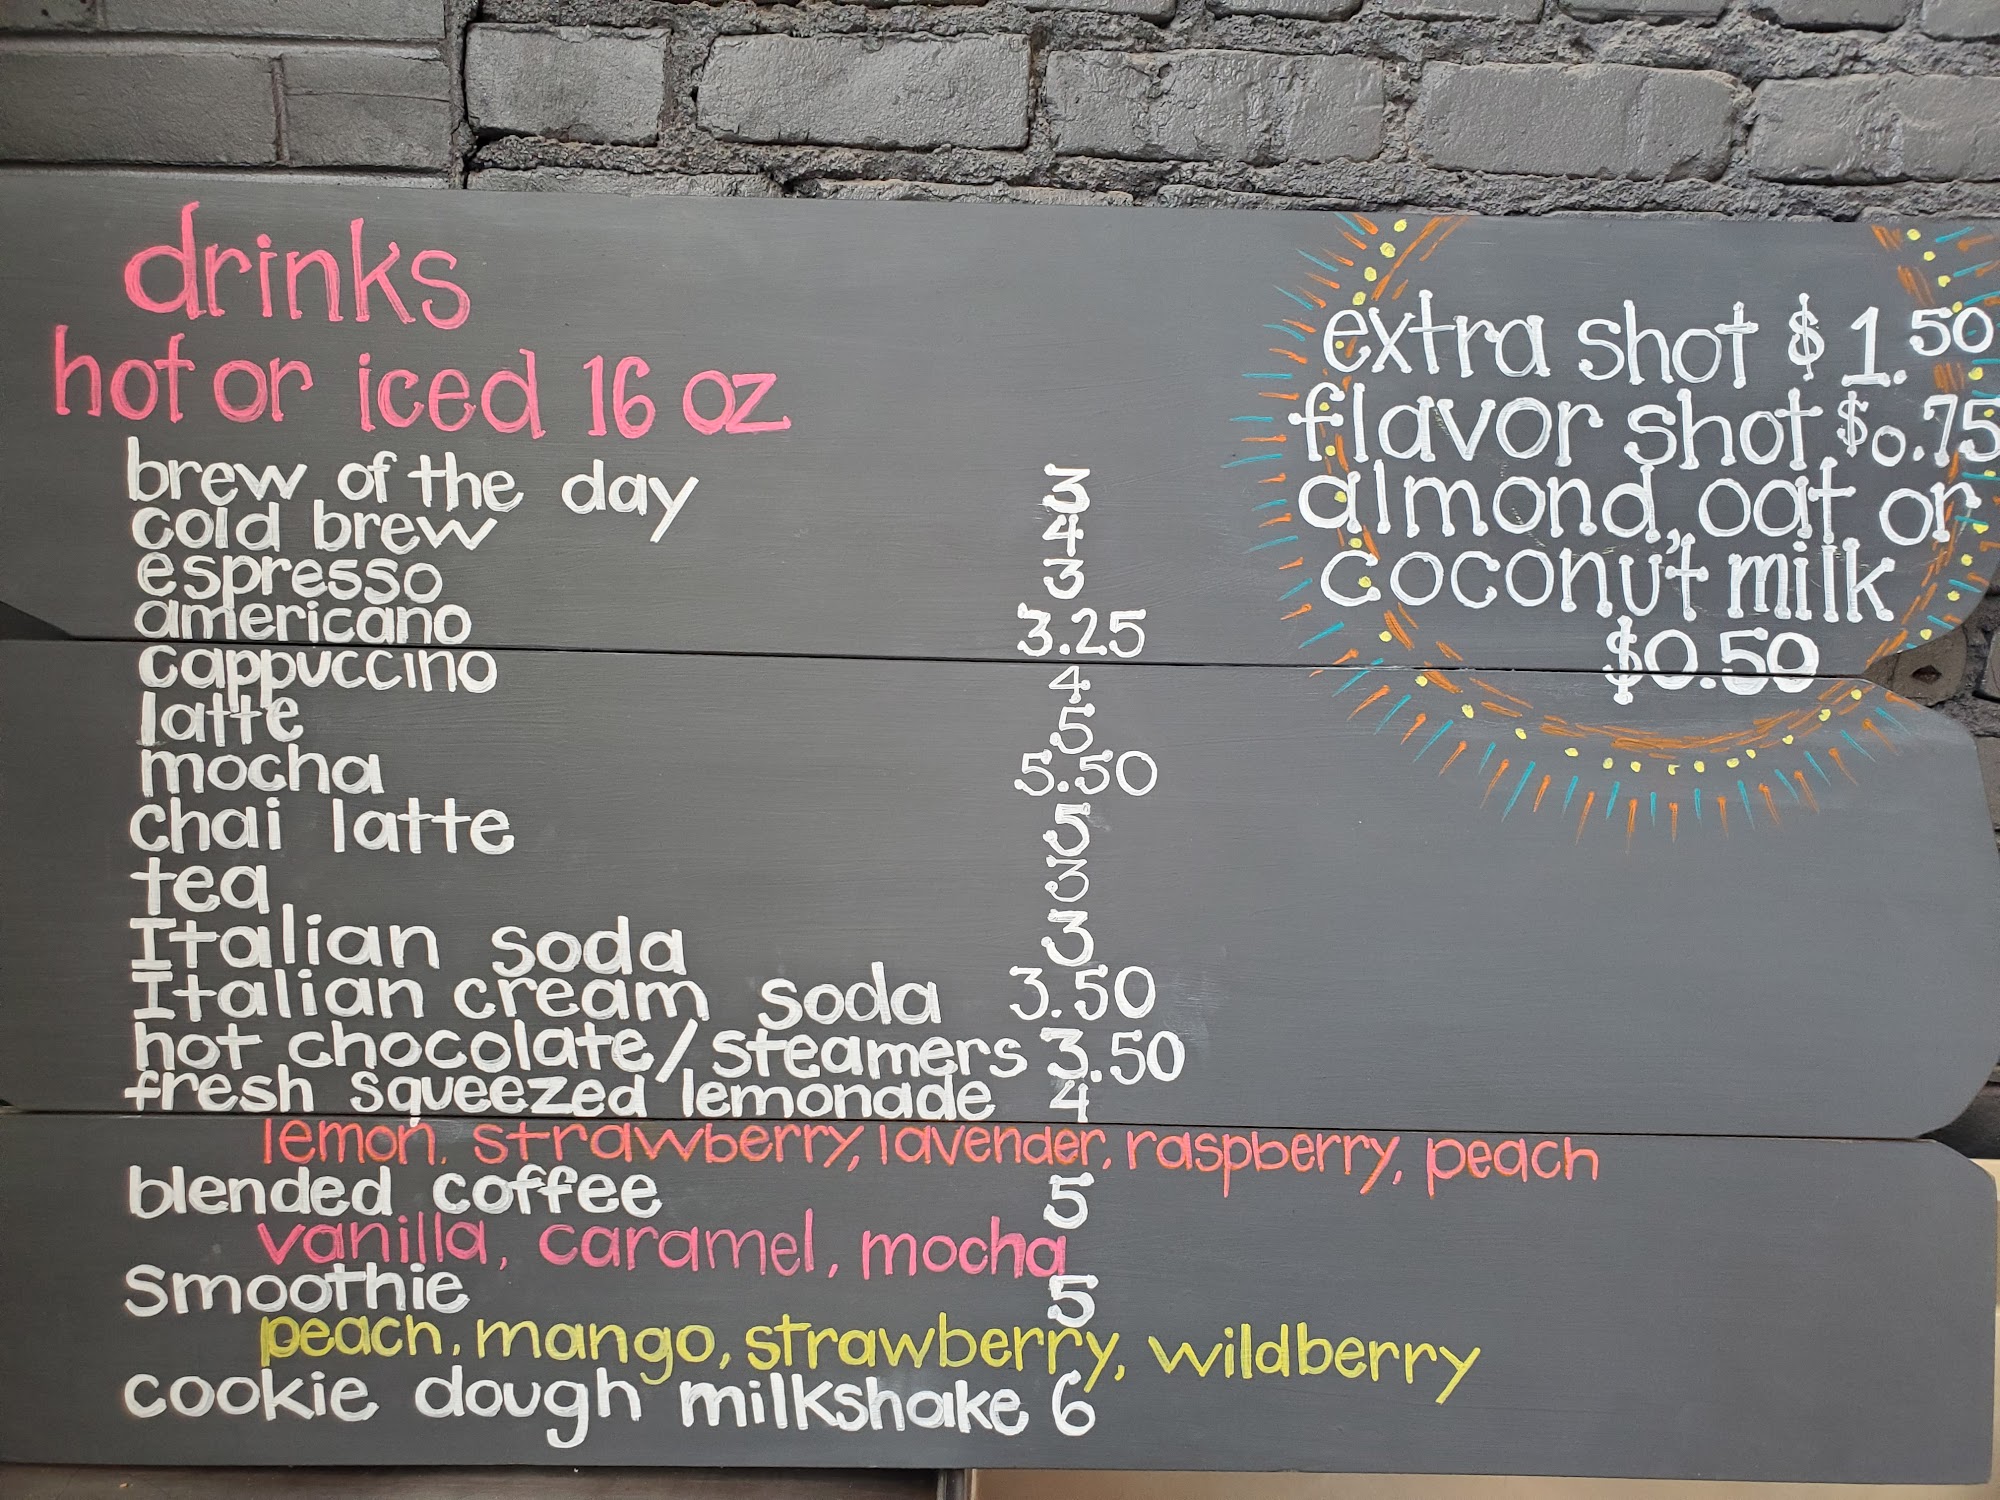 drinks
hot or iced 16 oz
brew of the day 3
cold brew 4
espresso 3
americano 3.25
cappuccino 4
latte 5
mocha 5.50
chai latte 5
tea 3
Italian soda 3
Italian cream soda 3.50
hot chocolate/steamers 3.50
fresh squeezed lemonade 4
lemon, strawberry, lavender, raspberry, peach
blended coffee 5
vanilla, caramel, mocha
smoothie 5
peach, mango, strawberry, wildberry
cookie dough milkshake 6
extra shot $1.50
flavor shot $0.75
almond, oat or
coconut milk
$0.50